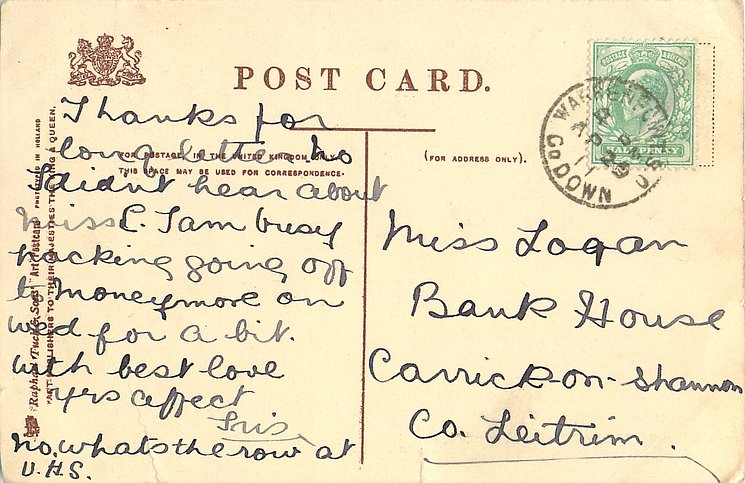 POST CARD.
FOR POSTAGE IN THE UNITED KINGDOM ONLY
THIS SPACE MAY BE USED FOR CORRESPONDENCE.
(FOR ADDRESS ONLY).
Thanks for
long letter. No
I didn't hear about
Miss L. I am busy
packing going off
to Moneymore on
wed for a bit.
with best love
yrs affect
Iris.
no. whats the row at
U.H.S.
Miss Logan
Bank House
Carrick-on-Shannon
Co. Leitrim.
"Raphael Tuck & Sons'" "Art" Postcard
PRINTED IN HOLLAND
ART PUBLISHERS TO THEIR MAJESTIES THE KING & QUEEN.
POSTAGE
HALFPENNY
WARRENPOINT
AP 25
11
Co DOWN